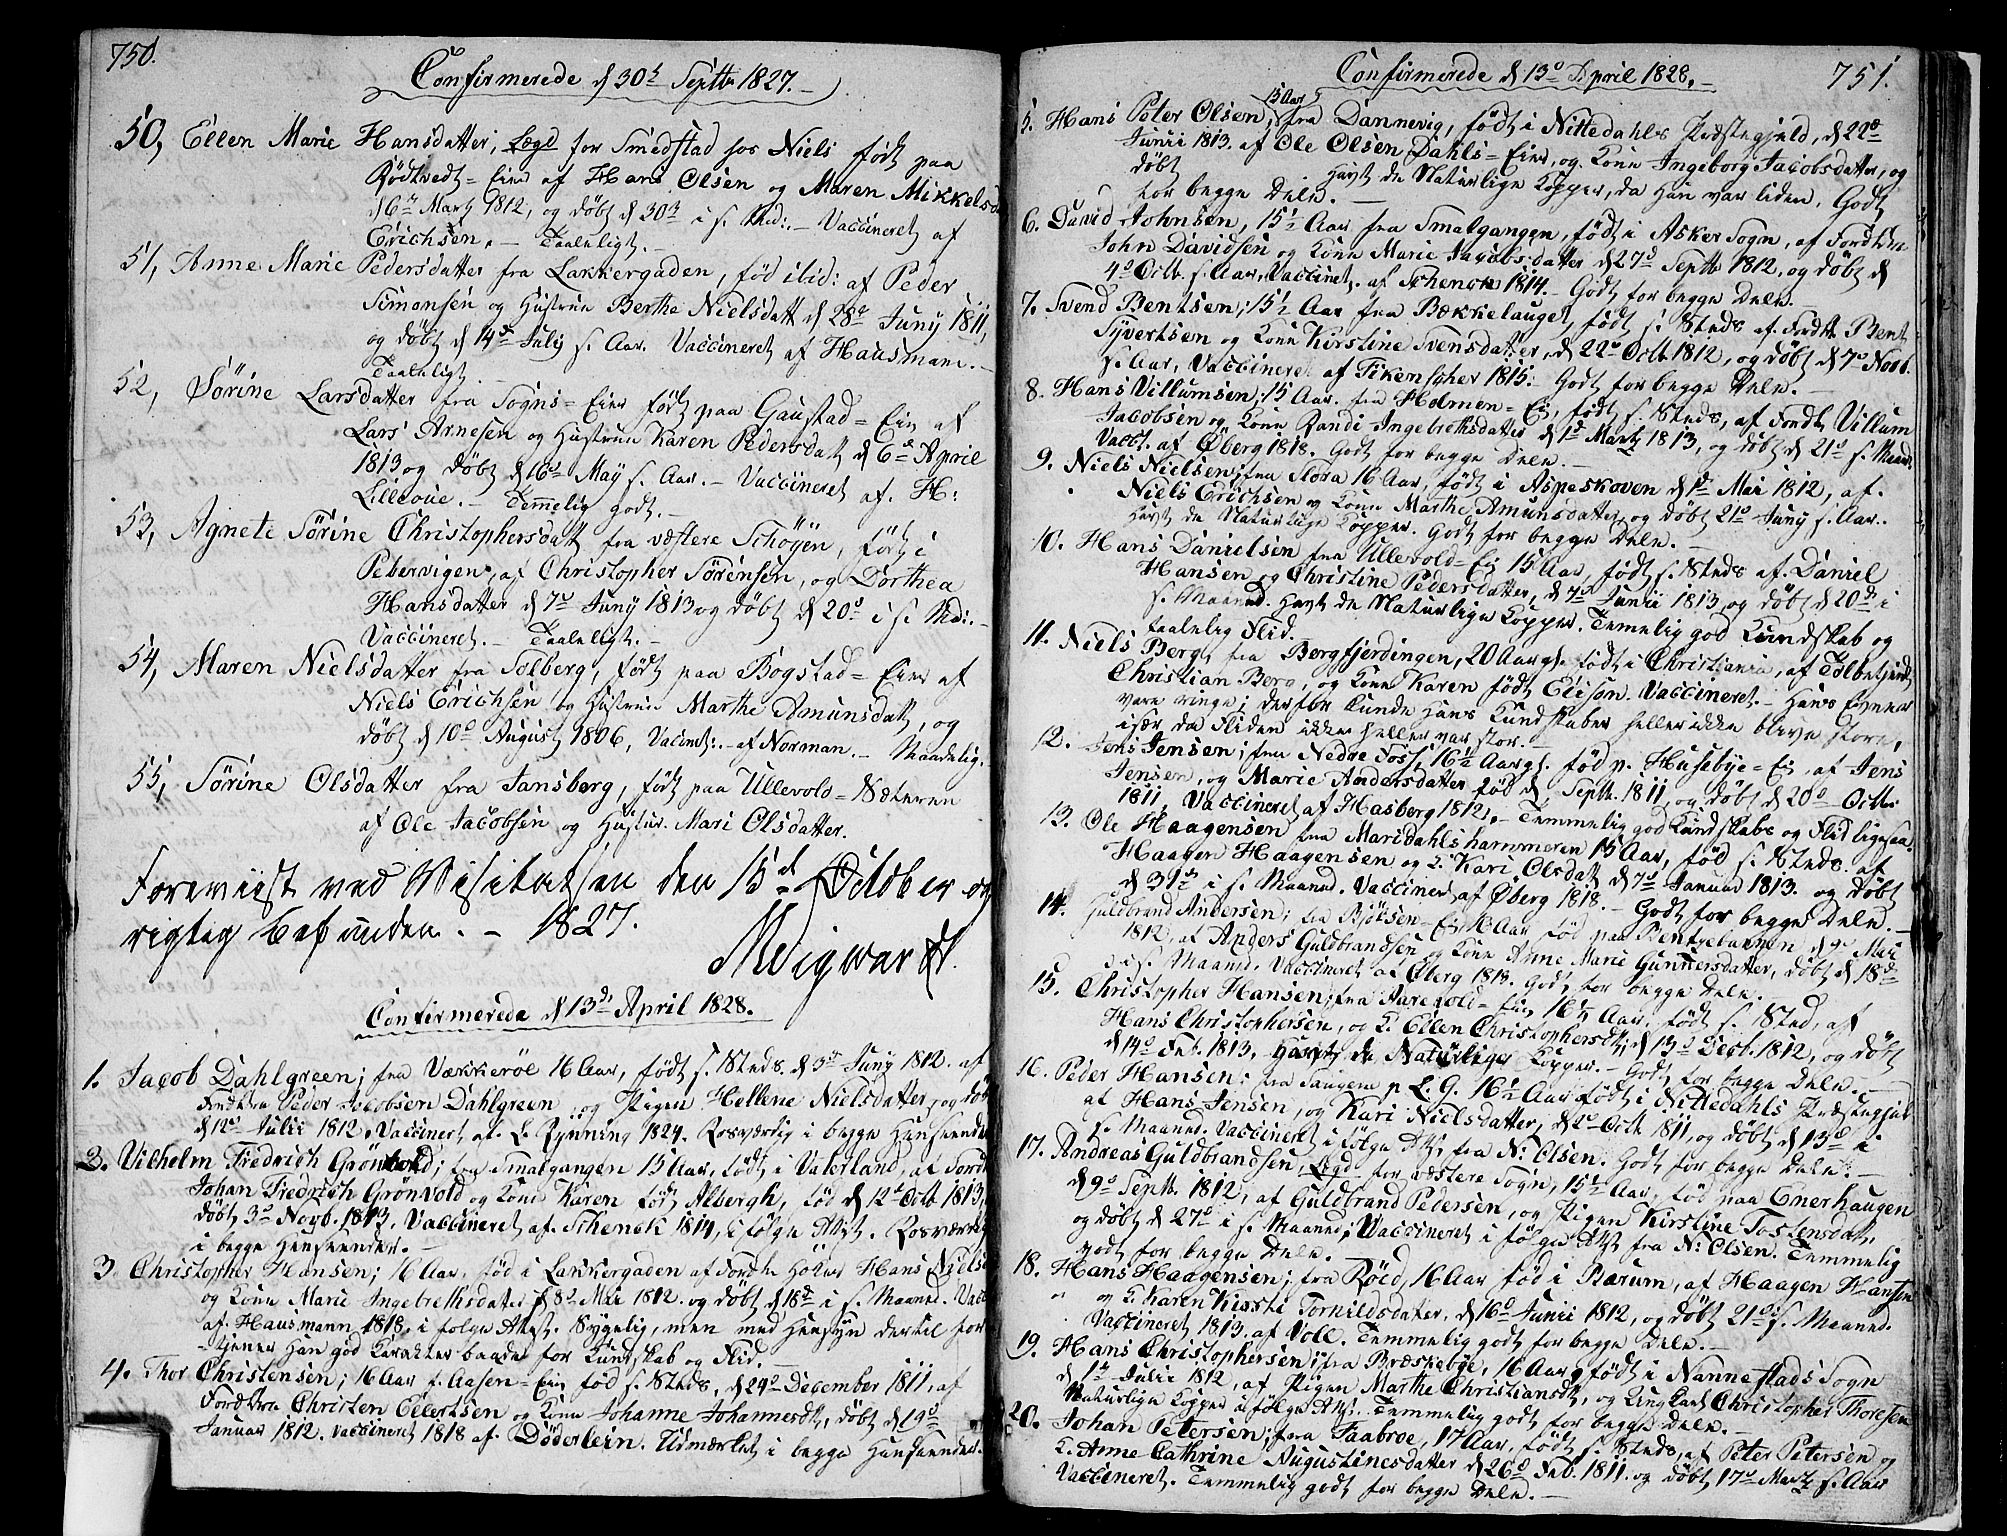 750.
Confirmerede d 30t Septbr 1827.
50, Ellen Marie Hansdatter, Lægd for Smedstad hos Niels født paa
Rödtvedt-Eier af Hans Olsen og Maren Mikkelsd
d 6te Martz 1812, og døbt d 30te i s. Md:. - Vaccineret af
Erichsen. - Taaleligt. -
51, Anne Marie Pedersdatter fra Lakkergaden, fød ibid: af Peder
Simonsen og Hustrue Berthe Nielsdatt d 28d Juny 1811,
og døbt d 14d July s. Aar. Vaccineret af Hausmann. -
Taaleligt. -
52, Sørine Larsdatter fra Sogns-Eier født paa Gaustad-Eier af
Lars Arnesen og Hustrue Karen Pedersdatt d 6d April
1813 og døbt d 16d May s. Aar. - Vaccineret af H:
Lillevue. - Temmelig godt. -
53, Agnete Sørine Christophersdatt fra væstere Schøyen, født i
Pebervigen, af Christopher Sørensen, og Dorthea
Hansdatter d 7d Juny 1813 og døbt d 20d i s. Md:. -
Vaccineret. - Taaleligt. -
54, Maren Nielsdatter fra Solberg, født paa Bogstad-Eier af
Niels Erichsen og Hustrue Marthe Amunsdatt, og
døbt d 10d August 1806, Vaccinet:. - af Norman. - Maadelig.
55, Sørine Olsdatter fra Jansberg, født paa Ullevold-Sæteren
af Ole Jacobsen og Hustr. Mari Olsdatter.
Foreviist ved Visitatsen den 15d October og
rigtig befunden. - 1827.
Confirmerede d 13d April 1828.
1. Jacob Dahlgreen; fra Vækkerøe 16 Aar, født s. Steds. d 3d Juny 1812. af
Fordtra Peder Jacobsen Dahlgreen, og Pigen Hellene Nielsdatter, og døbt
d 12d Julii 1812. Vaccinert af L. Rynning 1824. Rosværdig i begge Henseender
2. Vilhelm Fredrich Grönvold; fra Smalgangen 15 Aar, født i Vaterland, af Fordt
Johan Fredrich Grönvold og Kone Karen født Albergh, fød d 12d Octb 1813,
døbt 3d Novb. 1813. Vaccineret af Schenck 1814, i følge Attst. Rosværdig
i begge Henseender. -
3. Christopher Hansen; 16 Aar, fød i Lakkergaden af Fordte Höker Hans Niels
og Kone Marie Ingebrethsdatter d 8d Mai 1812. og døbt d 18d i s. Maaned. Vacc
af Hausmann 1818, i følge Attst. Sygelig, men med Hensyn dertil for
tjener han god Karakter baade for Kundskab og Flid. -
4. Thor Christensen; 16 Aar f. Aasen-Eier fød s. Steds, d 24d December 1811, af
Fordtra Christen Eilertsen og Kone Johanne Johannesdt, døbt d 19d
Januar 1812. Vaccineret 1818 af Döderlein. Udmærket i begge Henseender.
Confirmerede d 13d April 1828. -
751.
5. Hans Peter Olsen, 15 Aar, fra Dannevig, født i Nittedahls Præstegjeld, d 22d
Junii 1813. af Ole Olsen Dahls-Eier, og Kone Ingeborg Jacobsdatter, og
døbt havt de Naturlige Kopper, da han var liden. Godt
for begge Dele. -
6. David Johnsen, 15½ Aar fra Smalgangen, født i Asker Sogn, af Fordtra
John Davidsen og Kone Marie Jacobsdatter d 27d Septb 1812, og døbt d
4d Octb. s. Aar, Vaccinet. af Schenck 1814. - Godt for begge Dele. -
7. Svend Bentsen; 15½ Aar fra Bækkelauget, født s. Steds af Fordt Bent
Syvertsen og Kone Kirstine Svensdatter, d 22d Octb 1812, og døbt d 7d Novb.
s. Aar, Vaccineret af Tikenscher 1815. Godt for begge Dele. -
8. Hans Villumsen; 15 Aar. fra Holmen-Ei, født s. Steds, af Fordt Villum
Jacobsen og Kone Randi Ingebrethsdatter d 1d Martz 1813, og døbt d 21d s. Maaned.
Vacct. af Öberg 1818. Godt for begge Dele. -
9. Niels Nielsen; fra Flora 16 Aar, født i Aspeskoven d 1d Mai 1812, af
Niels Erichsen og Kone Marthe Amunsdatter, og døbt 21d Juny s. Aar.
havt de Naturlige Kopper. Godt for begge Dele. -
10. Hans Danielsen fra Ullevold-Ei 15 Aar, født s. Steds af Daniel
Hansen og Christine Pedersdatter, d 7d Junii 1813, og døbt d 20d i
s. Maaned. havt de Naturlige Kopper. Temelig god Kundskab og
taalelig Flid.
11. Niels Berg, fra Bergfjerdingen, 20 Aar gl. født i Christiania, af Tolbetjent
Christian Berg, og Kone Karen født Erison. Vaccineret. - Hans Evner
vare ringe; derfor kunde hans Kundskaber heller ikke blive store,
især da Fliden ikke heller var stor. -
12. Jens Jensen; fra Nedre Foss, 16½ Aar gl. fød p. Husebye-Ei af Jens
Jensen, og Marie Andersdatter fød d Septb. 1811, og døbt d 20d Octbr
1811, Vaccineret af Hasberg 1812. - Temmelig god Kundskab og Flid ligesaa.
13. Ole Haagensen fra Maridahlshammeren 15 Aar, fød s. Steds. af
Haagen Haagensen og K. Kari Olsdatt d 7d Januar 1813. og døbt
d 31d i s. Maaned. Vaccineret af Öberg 1818. - Godt for begge Dele. -
14. Guldbrand Andersen; fra Bjölsen-Ei 16 Aar fød paa Bentzebakken d 9d Mai
1812, af Anders Guldbrandsen og Kone Anne Marie Gunnersdatter, døbt d 18d
i s. Maaned. Vaccineret af Öberg 1813. Godt for begge Dele.
15. Christopher Hansen; fra Aarevold-Eie, 16½ Aar. født s. Sted, af
Hans Christophersen, og K. Ellen Christophersdt, d 13d Decb. 1812, og døbt
d 14d Feb. 1813. Havt de Naturlige Kopper. - Godt for begge Dele. -
16. Peder Hansen; fra Saugene p L. G. 16½ Aar født i Nittedahls Præstegjeld
af Hans Jensen, og Kari Nielsdatter, d 1d Octb 1811, og døbt d 13d i
s. Maaned. Vaccineret i følge Att. fra N. Olsen. Godt for begge Dele. -
17. Andreas Guldbrandsen, Lægd for væstere Sogn, 15½ Aar, fød paa Enerhaugen
d 9d Septb. 1812, af Guldbrand Pedersen, og Pigen Kirstine Tostensdatt,
og døbt d 27d i s. Maaned; Vaccineret i følge Att fra N: Olsen. Temmelig
godt for begge Dele. -
18. Hans Haagensen; fra Röed, 16 Aar fød i Bærum, af Haagen Hansen
og K. Karen Kirsti Tornildsdatter, d 16d Junii 1812, og døbt 21d s. Maaned.
Vaccineret 1813. af Voll. Temmelig godt for begge Dele. -
19. Hans Christophersen; fra Bræskebye, 16 Aar, født i Nannestads Sogn
d 1d Julii 1812, af Pigen Marthe Christiansdt, og Ungkarl Christopher Thoresen
Naturlige Kopper i følge Att. Temmelig godt for begge Dele. -
20. Johan Petersen; fra Faabroe, 17 Aar, født s. Steds, af Peter Petersen og
K. Anne Cathrine Augustinesdatter d 26d Feb. 1811. og døbt 17d Martz s. Aar
Vaccineret. Temmelig godt for begge Dele. -